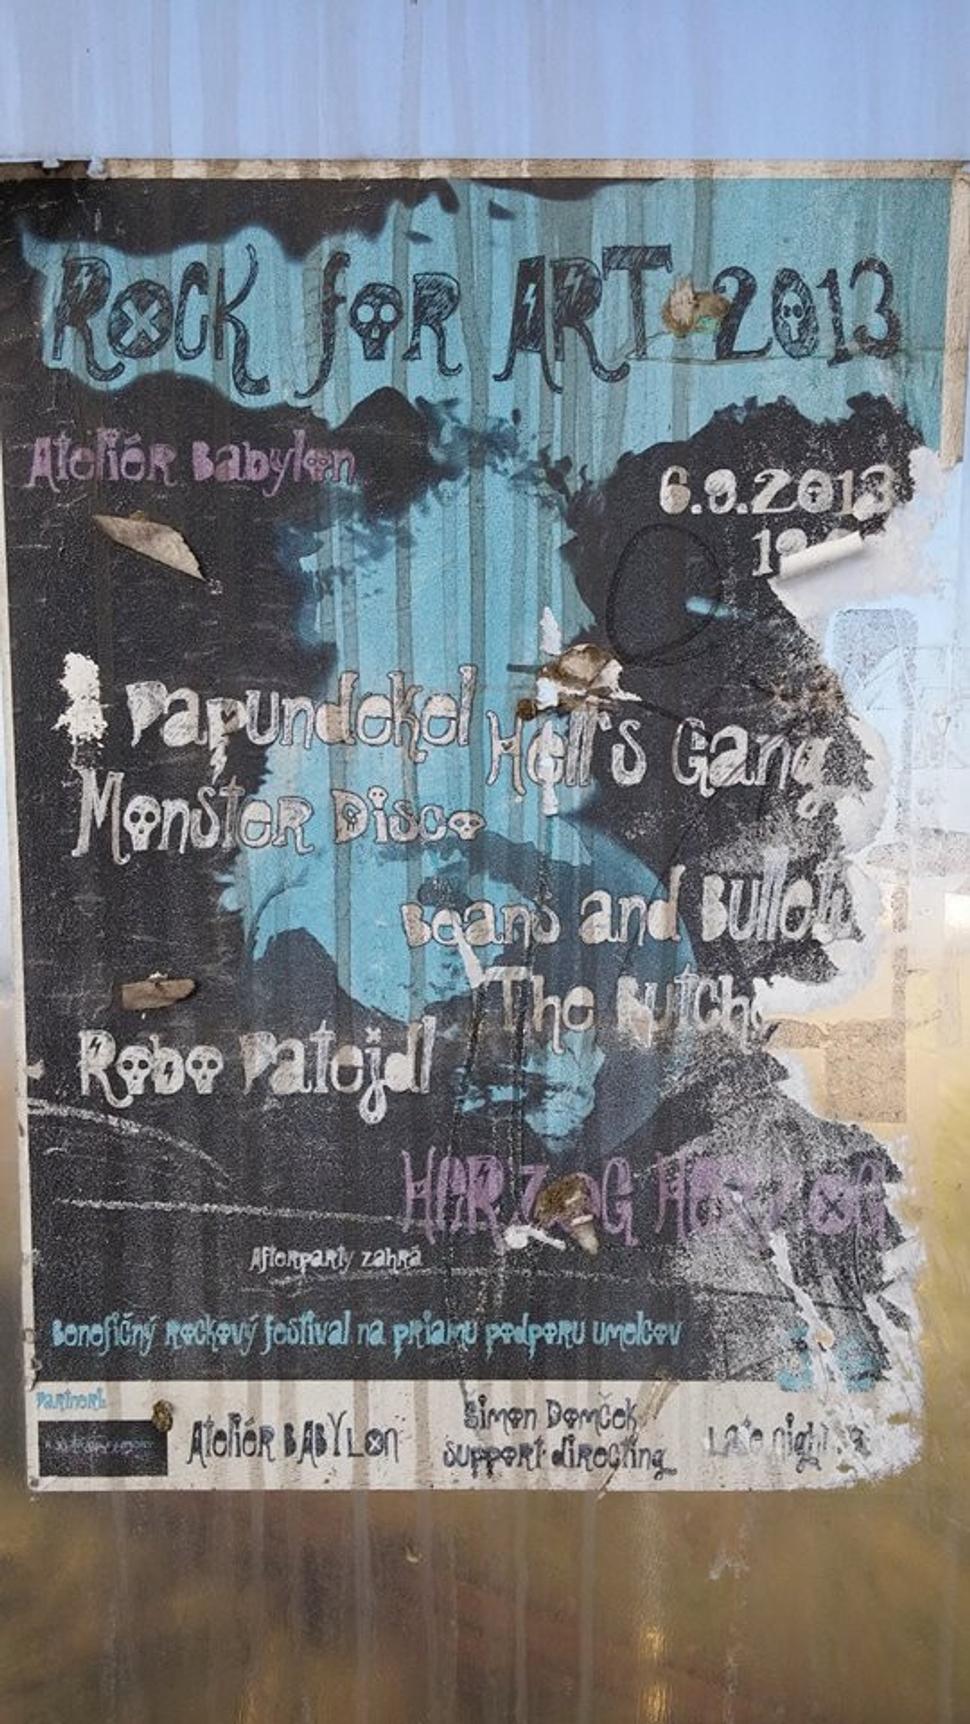 Rock for ART 2013
Ateliér Babylon
6.9.2013
Papundekel
Hell's Gang
Monster Disco
Beans and
The
Robo Patejdl
HARZOG HARZOG
Afterparty zahrá
Benefičný rockový festival na priamu podporu umelcov
Partneri:
Ateliér BABYLON
Šimon Domček
support directing
Late night